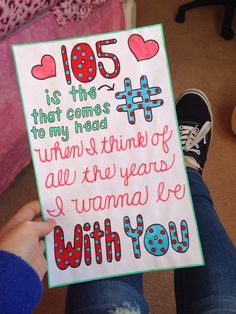 105
is the #
that comes
to my head
when I think of
all the years
I wanna be
With You